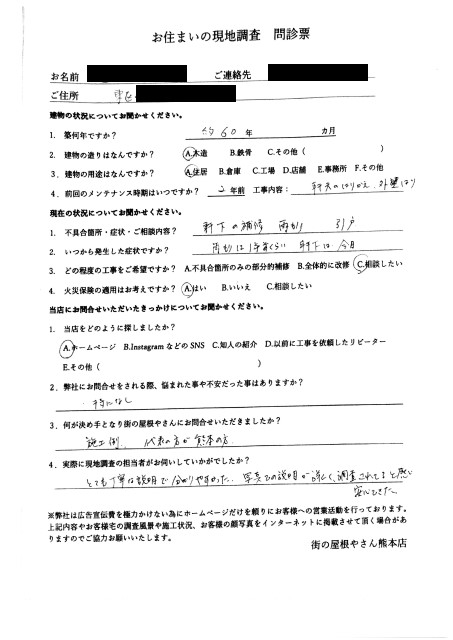 お住まいの現地調査 問診票
お名前 ご連絡先
ご住所 東区
建物の状況についてお聞かせください。
1. 築何年ですか? 約60年 カ月
2. 建物の造りはなんですか? A.木造 B.鉄骨 C.その他 ( )
3. 建物の用途はなんですか? A.住居 B.倉庫 C.工場 D.店舗 E.事務所 F.その他
4. 前回のメンテナンス時期はいつですか? 2年前 工事内容: 軒天のはりかえ、外壁はり
現在の状況についてお聞かせください。
1. 不具合箇所・症状・ご相談内容? 軒下の補修 雨もり 引戸
2. いつから発生した症状ですか? 雨もりは1年半くらい 軒下は今日
3. どの程度の工事をご希望ですか? A.不具合箇所のみの部分的補修 B.全体的に改修 C.相談したい
4. 火災保険の適用はお考えですか? A.はい B.いいえ C.相談したい
当店にお問合せいただいたきっかけについてお聞かせください。
1. 当店をどのように探しましたか?
A.ホームページ B.InstagramなどのSNS C.知人の紹介 D.以前に工事を依頼したリピーター
E.その他 ( )
2. 弊社にお問合せをされる際、悩まれた事や不安だった事はありますか?
・特になし
3. 何が決め手となり街の屋根やさんにお問合せいただきましたか?
施工例、代表の方が熊本の方
4. 実際に現地調査の担当者がお伺いしていかがでしたか?
とても丁寧な説明で分かりやすかった。写真での説明が詳しく、調査されてると思い
安心できた。
※弊社は広告宣伝費を極力かけない為にホームページだけを頼りにお客様への営業活動を行っております。
上記内容やお客様宅の調査風景や施工状況、お客様の顔写真をインターネットに掲載させて頂く場合があ
りますのでご協力お願いいたします。
街の屋根やさん熊本店